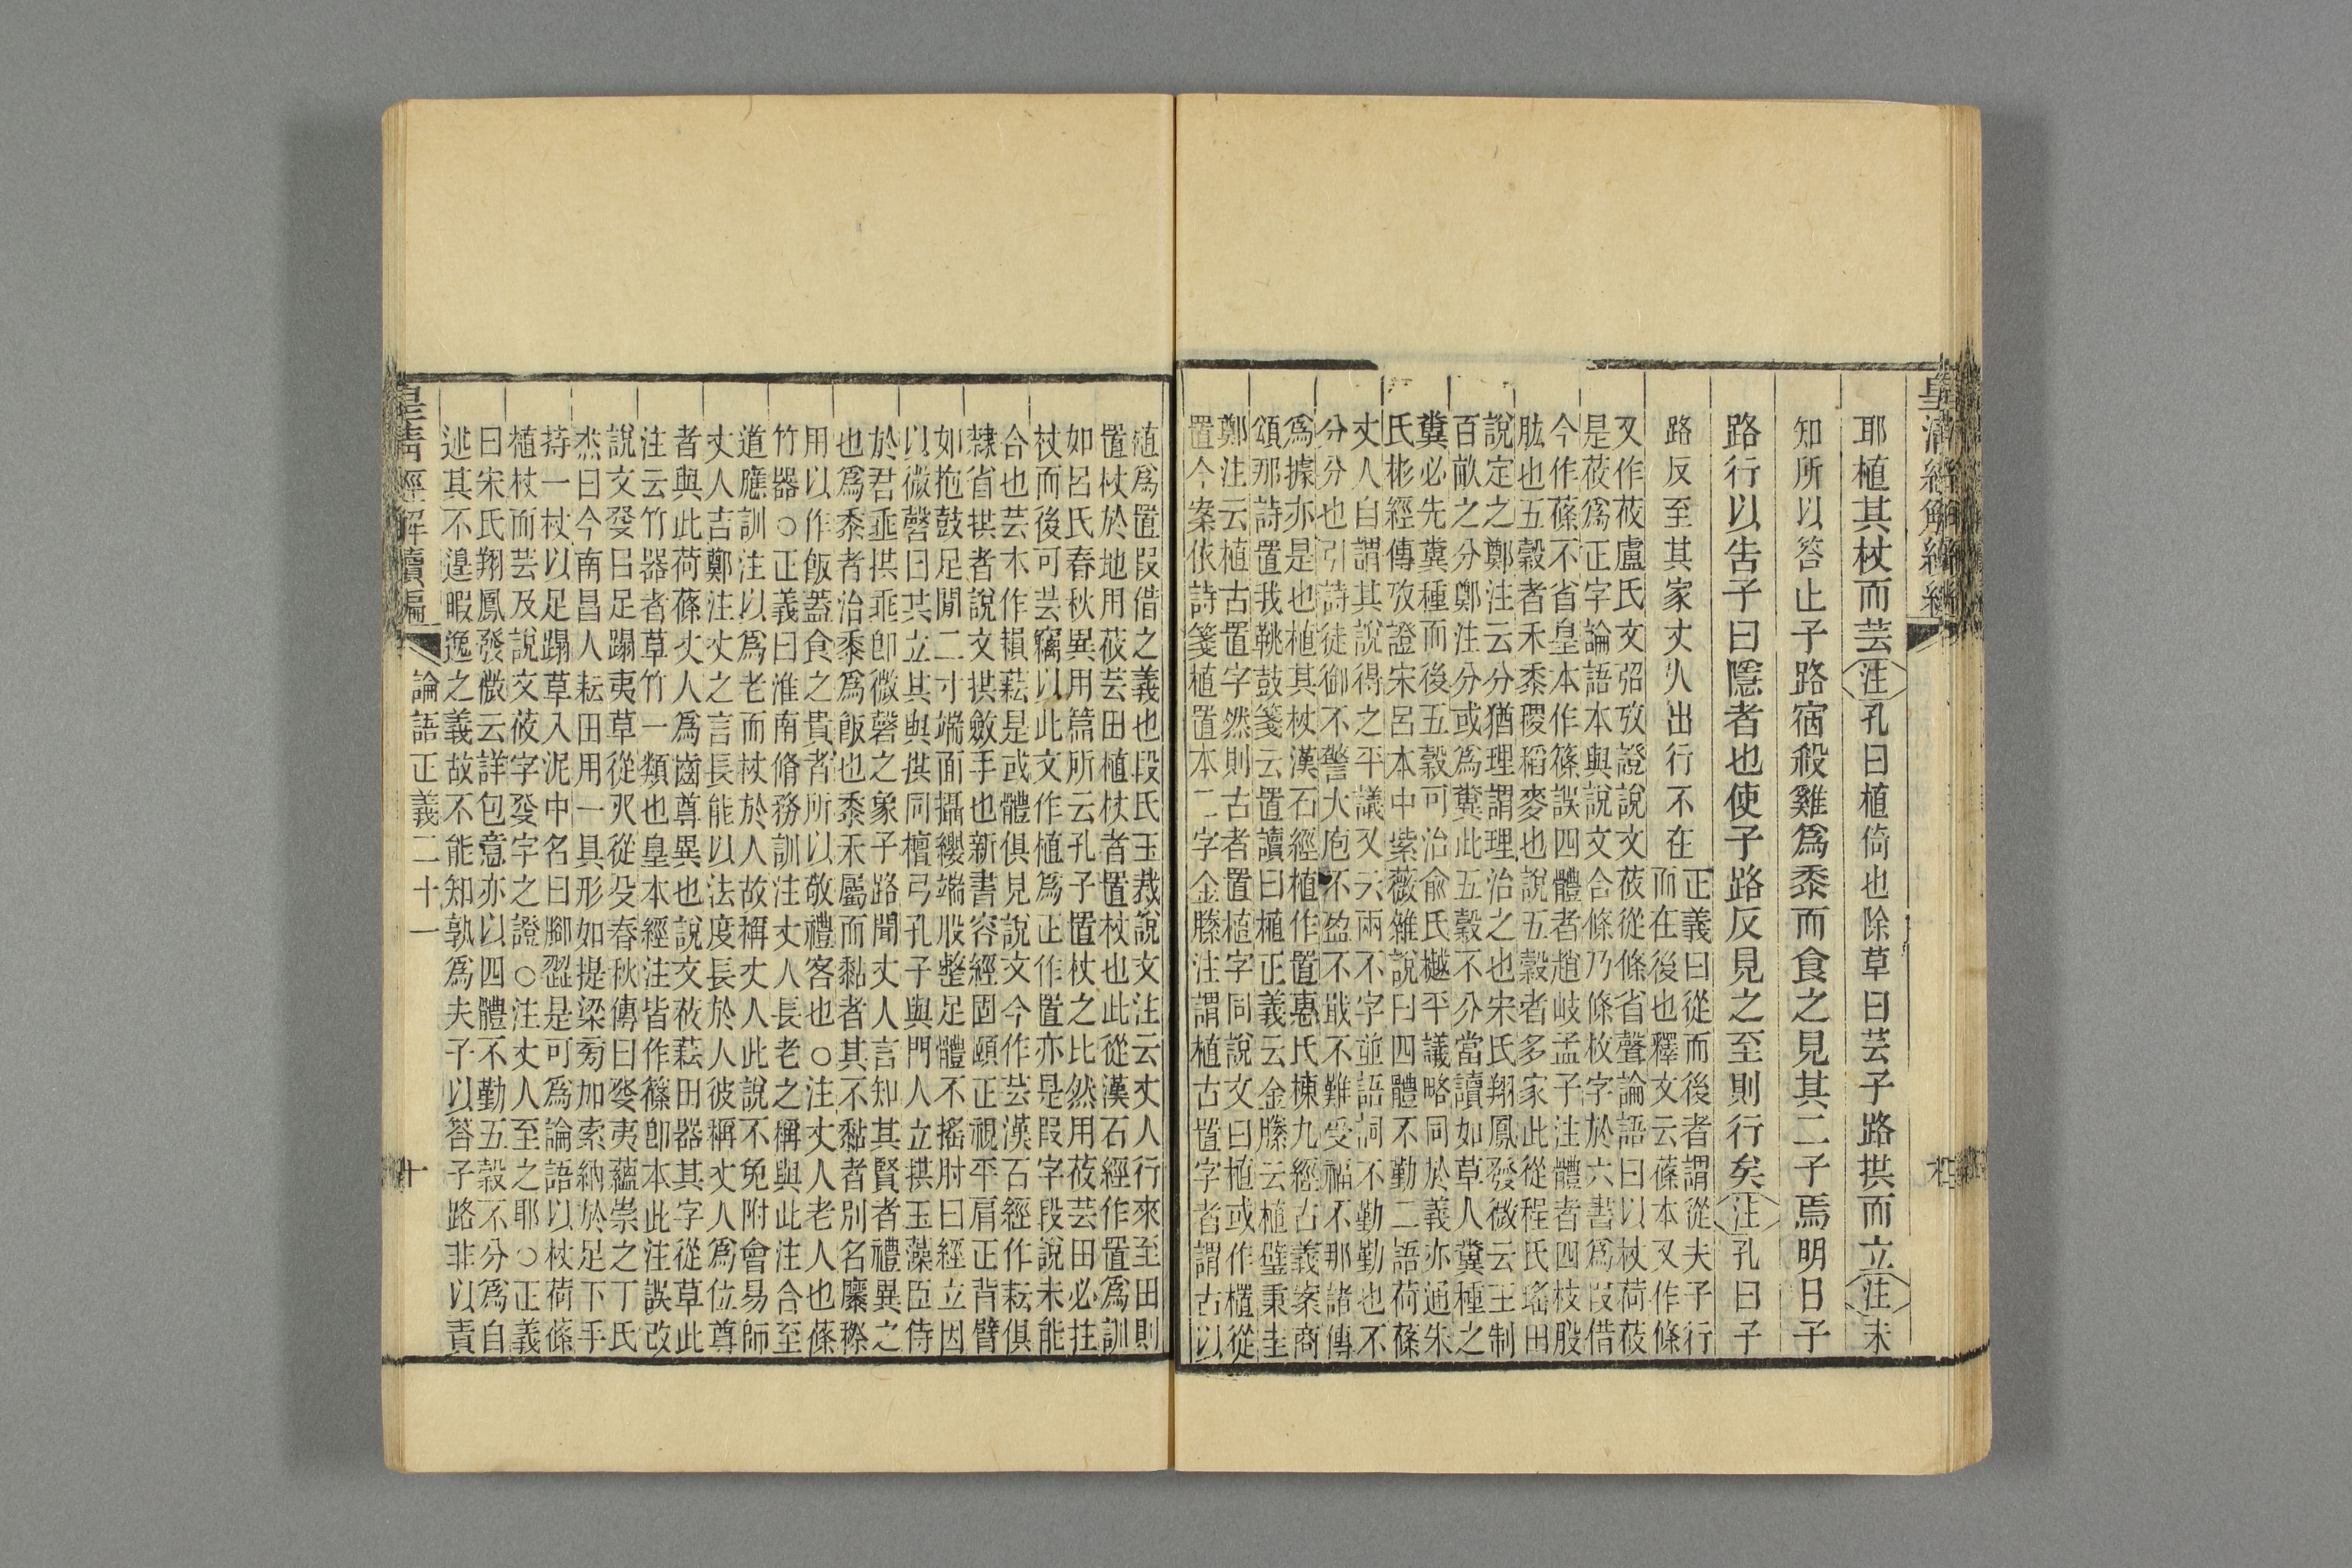 皇清經解續編
耶植其杖而芸注孔曰植倚也除草曰芸子路拱而立注未
知所以答止子路宿殺雞爲黍而食之見其二子焉明日子
路行以告子曰隱者也使子路反見之至則行矣注孔曰子
路反至其家丈人出行不在
正義曰從而後者謂從夫子行
而在後也釋文云蓧本又作條
又作莜盧氏文弨攷證說文莜從條省聲論語曰以杖荷莜
是莜爲正字論語本與說文合條乃條枚字於六書爲叚借
今作蓧不省皇本作篠誤四體者趙岐孟子注體者四枝股
肱也五穀者禾黍稷稻麥也說五穀者多家此從程氏瑤田
說定之鄭注云分猶理謂理治之也宋氏翔鳳發微云王制
百畝之分鄭注分或爲糞此五穀不分當讀如草人糞種之
糞必先糞種而後五穀可治俞氏樾平議略同於義亦通朱
氏彬經傳攷證宋呂本中紫薇雜說曰四體不勤二語荷蓧
丈人自謂其說得之平議又云兩不字並語詞不勤勤也不
分分也引詩徒御不警大庖不盈不戢不難受福不那諸傳
爲據亦是也植其杖漢石經植作置惠氏棟九經古義案商
頌那詩置我鞉鼓箋云置讀曰植正義云金縢云植璧秉圭
鄭注云植古置字然則古者置植字同說文曰植或作㯰從
置今案依詩箋植置本二字金縢注謂植古置字者謂古以
植爲置叚借之義也段氏玉裁說文注云丈人行來至田則
置杖於地用莜芸田植杖者置杖也此從漢石經作置爲訓
如呂氏春秋異用篇所云孔子置杖之比然用莜芸田必拄
杖而後可芸竊以此文作植爲正作置亦是叚字段說未能
合也芸木作䅵耘是或體俱見說文今作芸漢石經作耘俱
隸省拱者說文拱斂手也新書容經固頤正視平肩正背臂
如抱鼓足閒二寸端面攝纓端股整足體不搖肘曰經立因
以微磬曰共立其與拱同檀弓孔子與門人立拱玉藻臣侍
於君垂拱垂卽微磬之象子路聞丈人言知其賢者禮異之
也爲黍者治黍爲飯也黍禾屬而黏者其不黏者別名穈穄
用以作飯蓋食之貴者所以敬禮客也○注丈人老人也蓧
竹器○正義曰淮南脩務訓注丈人長老之稱與此注合至
道應訓注以爲老而杖於人故稱丈人此說不免附會易師
丈人吉鄭注丈之言長能以法度長於人彼稱丈人爲位尊
者與此荷蓧丈人爲齒尊異也說文莜䒳田器其字從草此
注云竹器者草竹一類也皇本經注皆作篠卽本此注誤改
說文癹㠯足蹋夷草從癶從殳春秋傳曰癹夷蘊崇之丁氏
杰曰今南昌人耘田用一具形如提梁旁加索納於足下手
持一杖以足蹋草入泥中名曰腳澀是可爲論語以杖荷蓧
植杖而芸及說文莜字癹字之證○注丈人至之耶○正義
曰宋氏翔鳳發微云詳包意亦以四體不勤五穀不分爲自
述其不遑暇逸之義故不能知孰爲夫子以答子路非以責
皇淸經解續編
論語正義二十一
十